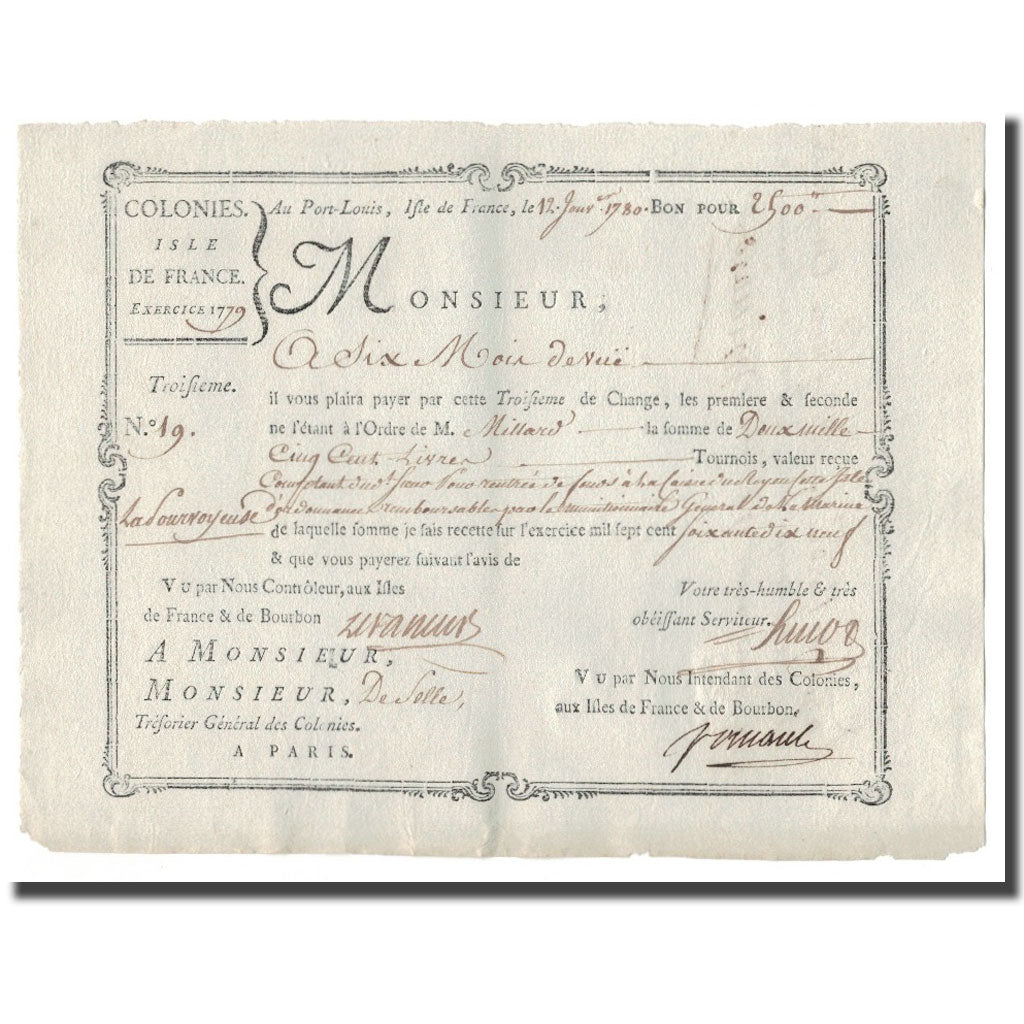 COLONIES.
ISLE
DE FRANCE.
EXERCICE 1779
Au Port-Louis, Isle de France, le 12. Janvr. 1780. BON POUR 2500
MONSIEUR,
A Six Mois de vuë
Troiſieme.
N.° 19.
il vous plaira payer par cette Troiſieme de Change, les premiere & ſeconde
ne l'étant à l'Ordre de M. Millard la ſomme de Deux mille
Cinq Cent Livres Tournois, valeur reçue
Comptant rentrée de fonds à la Caisse du Roy en cette Isle
La Pourvoyeuse
d'ordonnance remboursables par le munitionnaire General de La Marine
de laquelle ſomme je fais recette ſur l'exercice mil ſept cent soixante dix neuf
& que vous payerez ſuivant l'avis de
VU par Nous Contrôleur, aux Iſles
de France & de Bourbon
Votre très-humble & très
obéiſſant Serviteur.
A MONSIEUR,
MONSIEUR, De Selle,
Tréſorier Général des Colonies.
A PARIS.
VU par Nous Intendant des Colonies,
aux Iſles de France & de Bourbon.